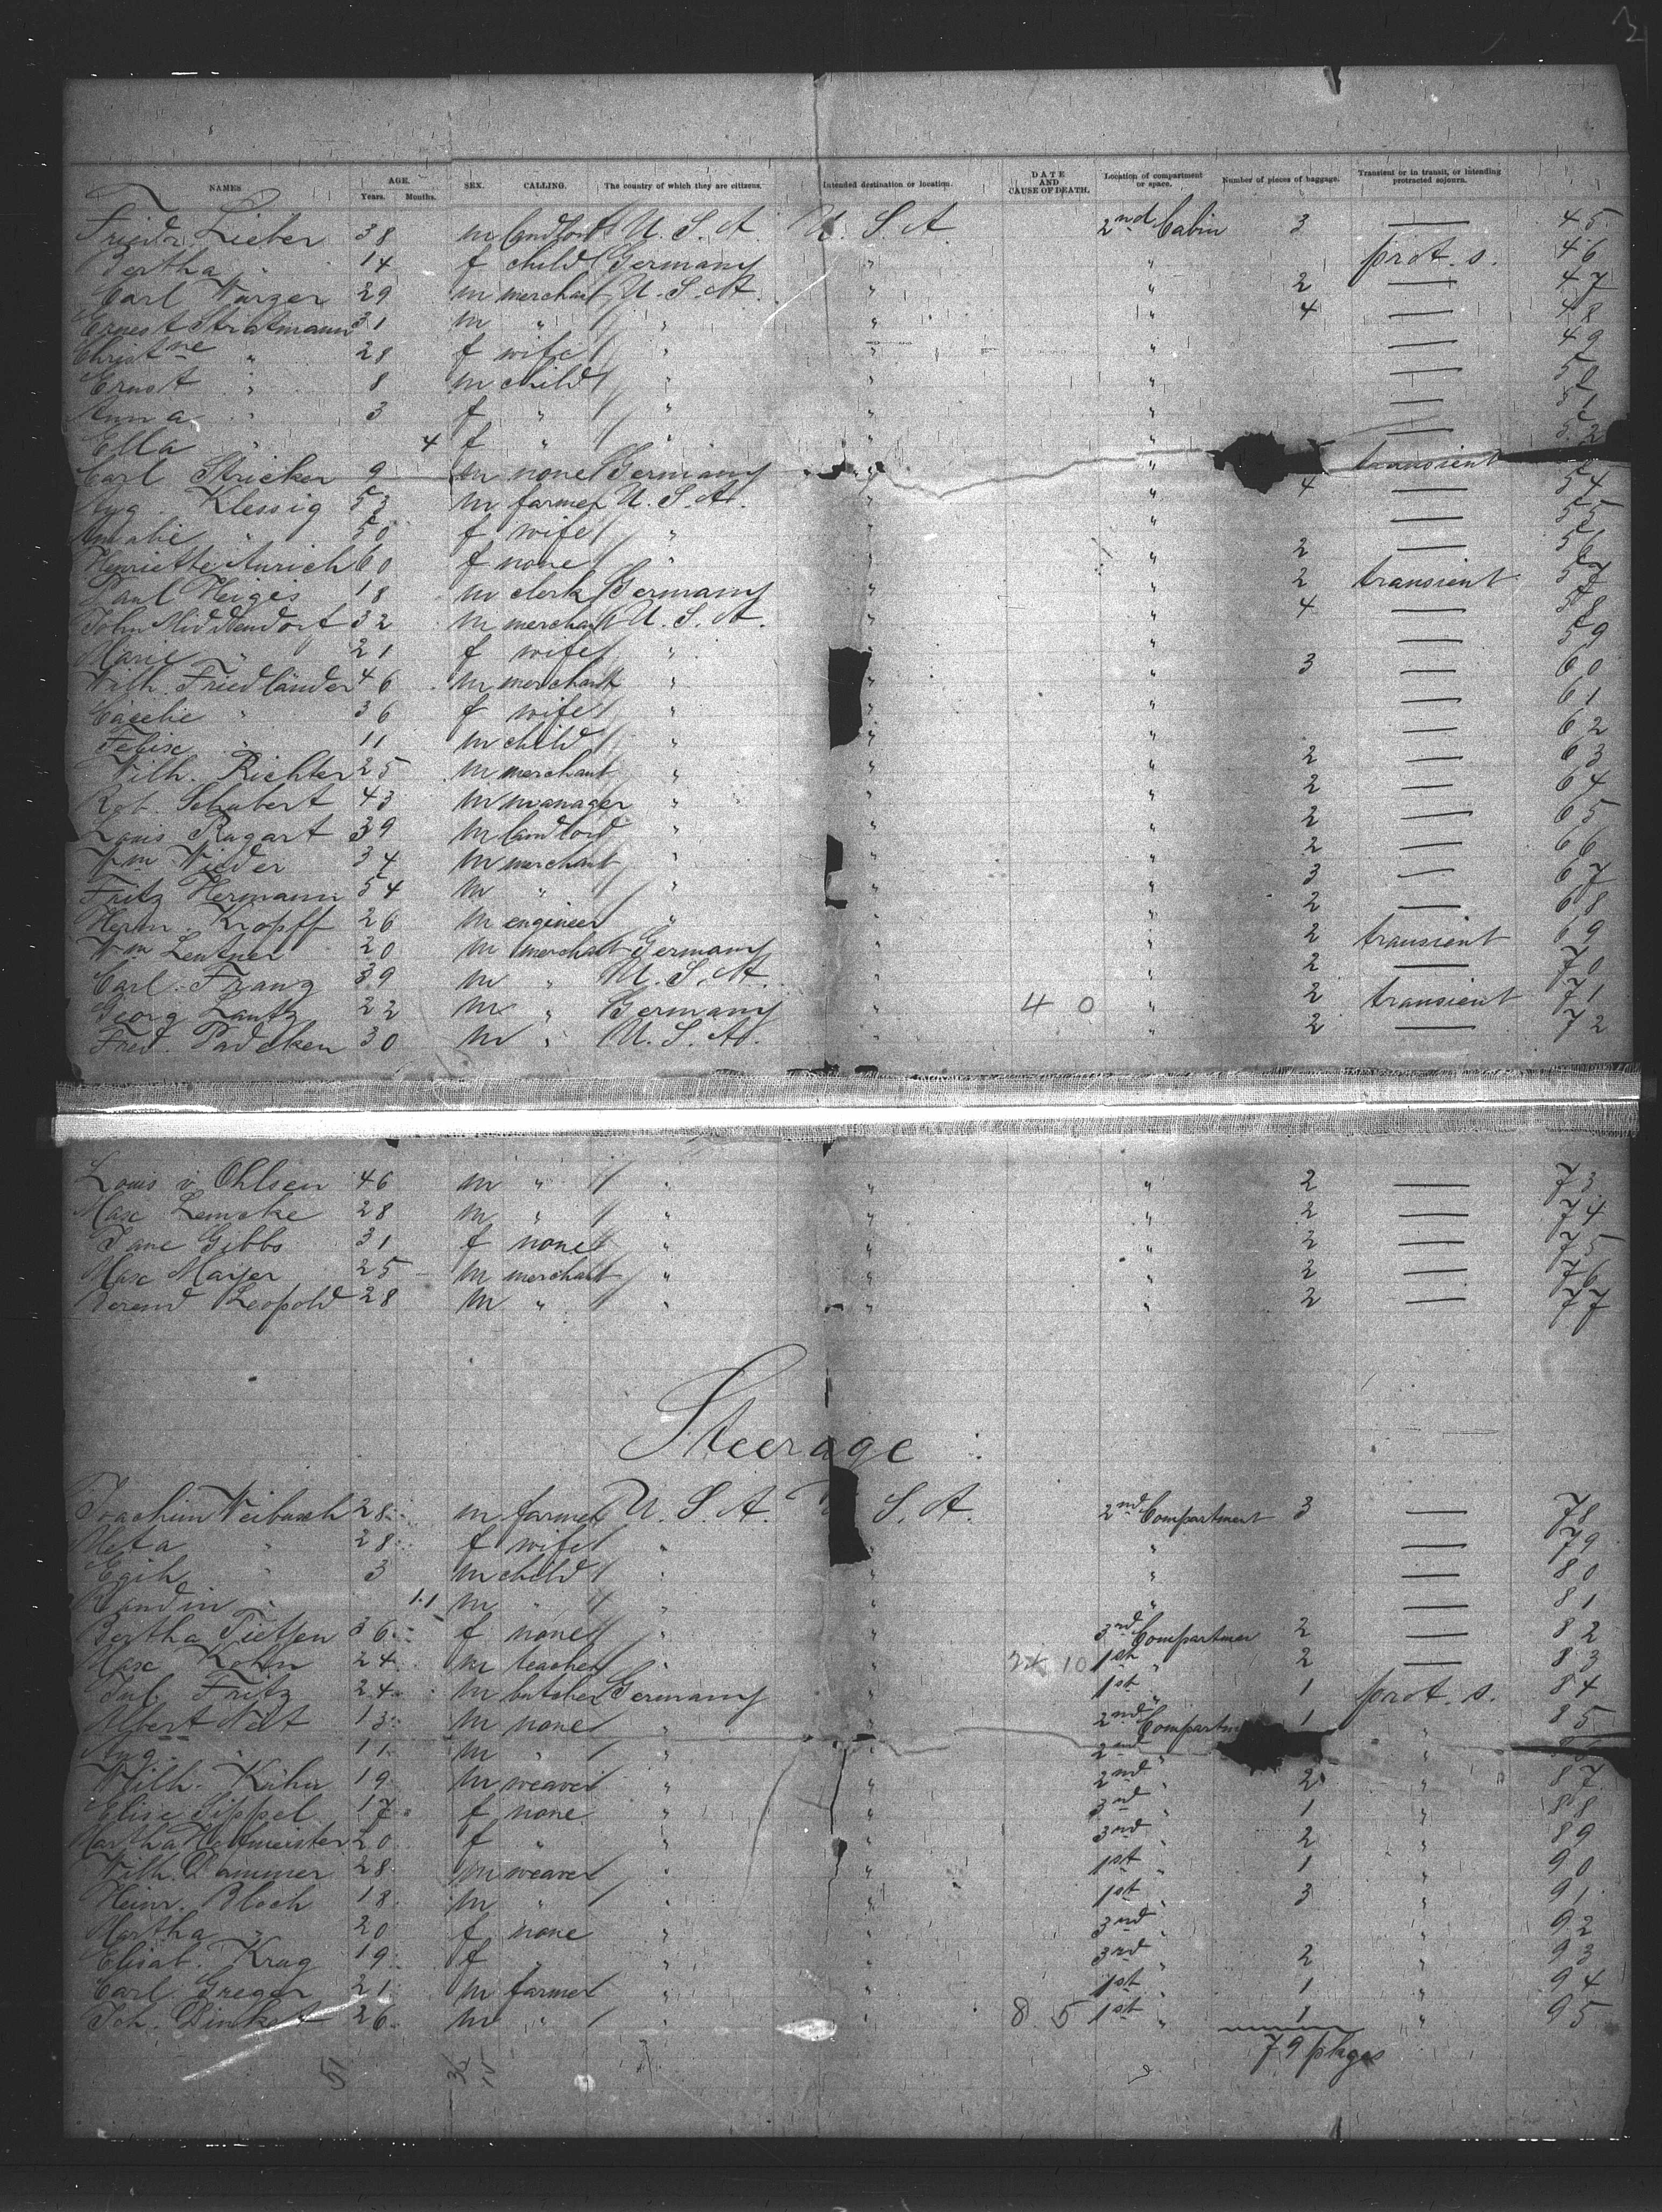 3
NAMES AGE. Years. Months. SEX. CALLING. The country of which they are citizens. Intended destination or location. DATE AND CAUSE OF DEATH. Location of compartment or space. Number of pieces of baggage. Transient or in transit, or intending protracted sojourn.
Friedr. Lieber 38 m landlord U. S. A. U. S. A. 2nd Cabin 3 — 45
Bertha " 14 f child Germany " " prot. s. 46
Carl Wurger 29 m merchant U. S. A. " " 2 — 47
Ernest Stratmann 31 m " " " " 4 — 48
Christne " 28 f wife " " " — 49
Ernst " 8 m child " " " — 50
Anna " 3 f " " " " — 51
Ella " 4 f " " " " — 52
Carl Stricker 9 m none Germany " " transient
Aug. Klessig 53 m farmer U. S. A. " " 4 — 54
Amalie " 50 f wife " " " — 55
Henriette Aurich 60 f none " " " 2 — 56
Paul Heiges 18 m clerk Germany " " 2 transient 57
John Middendorf 32 m merchant U. S. A. " " 4 — 58
Marie " 21 f wife " " — 59
Wilh. Friedländer 46 m merchant " " " 3 — 60
Caecelie " 36 f wife " " " — 61
Felix " 11 m child " " " — 62
Wilh. Richter 25 m merchant " " " 2 — 63
Rob. Schubert 43 m manager " " " 2 — 64
Louis Rugart 39 m landlord " " " 2 — 65
Wm Wieder 34 m merchant " " " 2 — 66
Fritz Hermann 54 m " " " " 3 — 67
Herm. Kropff 26 m engineer " " " 2 — 68
Wm Lentner 20 m merchant Germany " " 2 transient 69
Carl Franz 39 m " U. S. A. " " 2 — 70
Georg Lantz 22 m " Germany " 4 0 " 2 transient 71
Fred. Padeken 30 m " U. S. A. " " 2 — 72
Louis v. Ohlsen 46 m " " " " 2 — 73
Max Lemcke 28 m " " " " 2 — 74
Jane Gibbs 31 f none " " " 2 — 75
Max Mayer 25 m merchant " " " 2 — 76
Berend Leopold 28 m " " " " 2 — 77
Steerage
Joachim Weibusch 28 m farmer U. S. A. U. S. A. 2nd Compartment 3 — 78
Meta " 28 f wife " " " — 79
Egih " 3 m child " " " — 80
Randin " 11 m " " " " — 81
Bertha Tietjen 36 f none " " 3rd Compartmen 2 — 82
Max Kohn 24 m teacher " " 24 10 1st " 2 — 83
Jul. Fritz 24 m butcher Germany " 1st " 1 prot. s. 84
Albert Veit 13 m none " " 2nd Compartm 1 " 85
Aug. " 11 m " " " 2nd " "
Wilh. Kuhn 19 m weaver " " 2nd " 2 " 87
Elise Sippel 17 f none " " 3rd " 1 " 88
Martha Hofmeister 20 f " " " 3rd " 2 " 89
Wilh. Dammer 28 m weaver " " 1st " 1 " 90
Heinr. Bloch 18 m " " " 1st " 3 " 91
Martha " 20 f none " " 3rd " " 92
Elisab. Krug 19 f " " " 3rd " 2 " 93
Carl Greger 21 m farmer " " 1st " 1 " 94
Joh. 26 m " " " 8 5 1st " 1 " 95
79 pkges